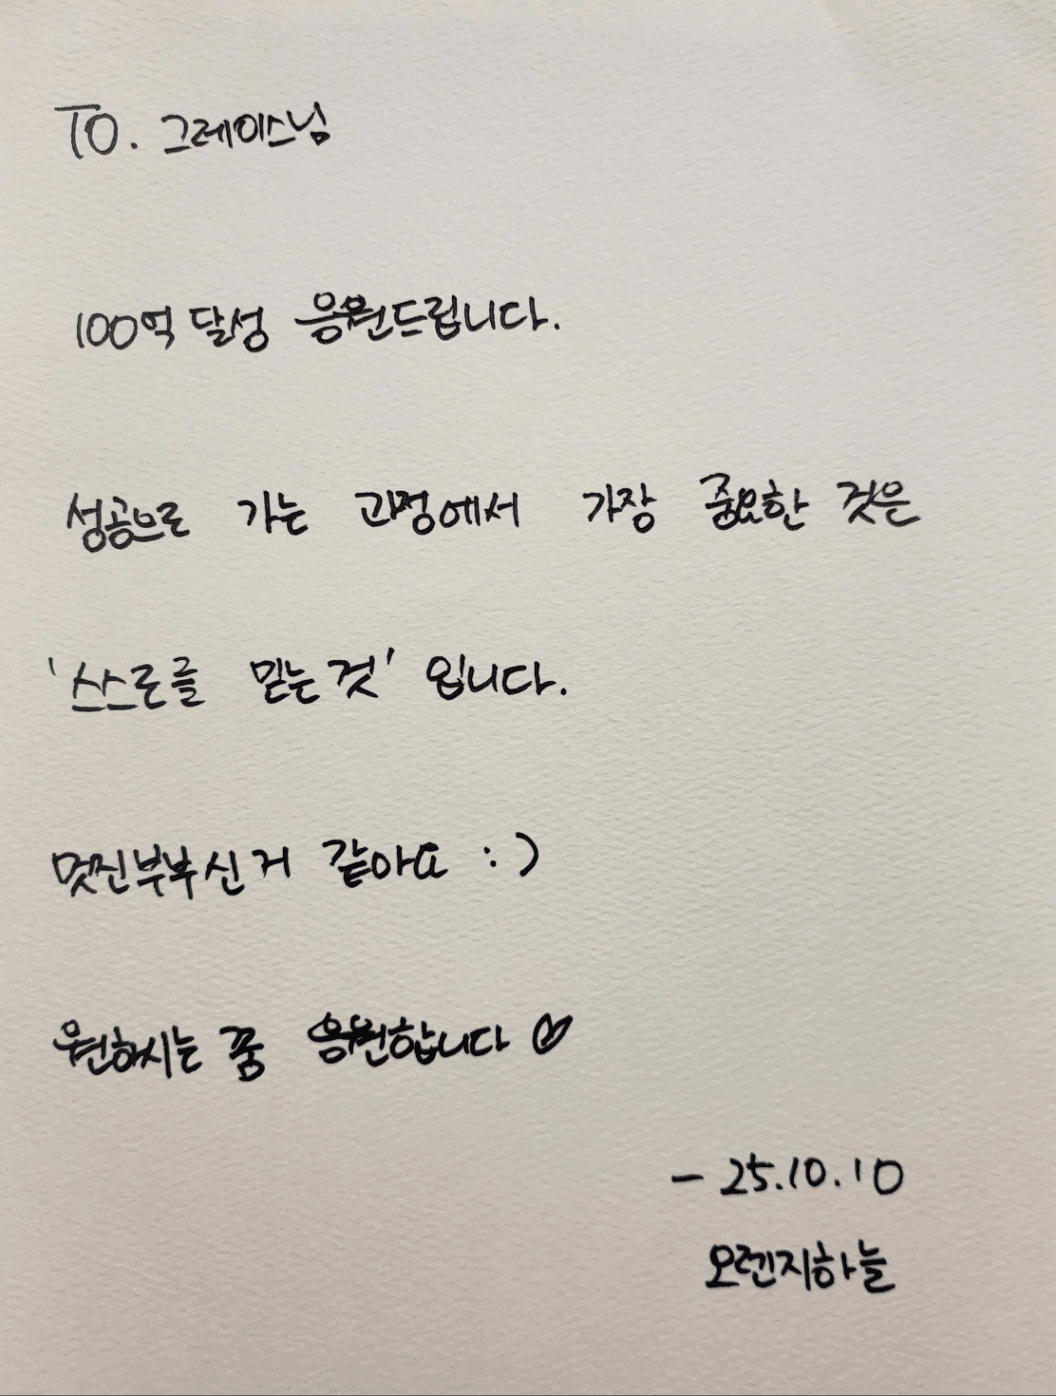 TO. 그레이스님
100억 달성 응원드립니다.
성공으로 가는 과정에서 가장 중요한 것은
'스스로를 믿는 것' 입니다.
멋진부부신 거 같아요 :)
원하시는 꿈 응원합니다 ♡
- 25.10.10
오렌지하늘